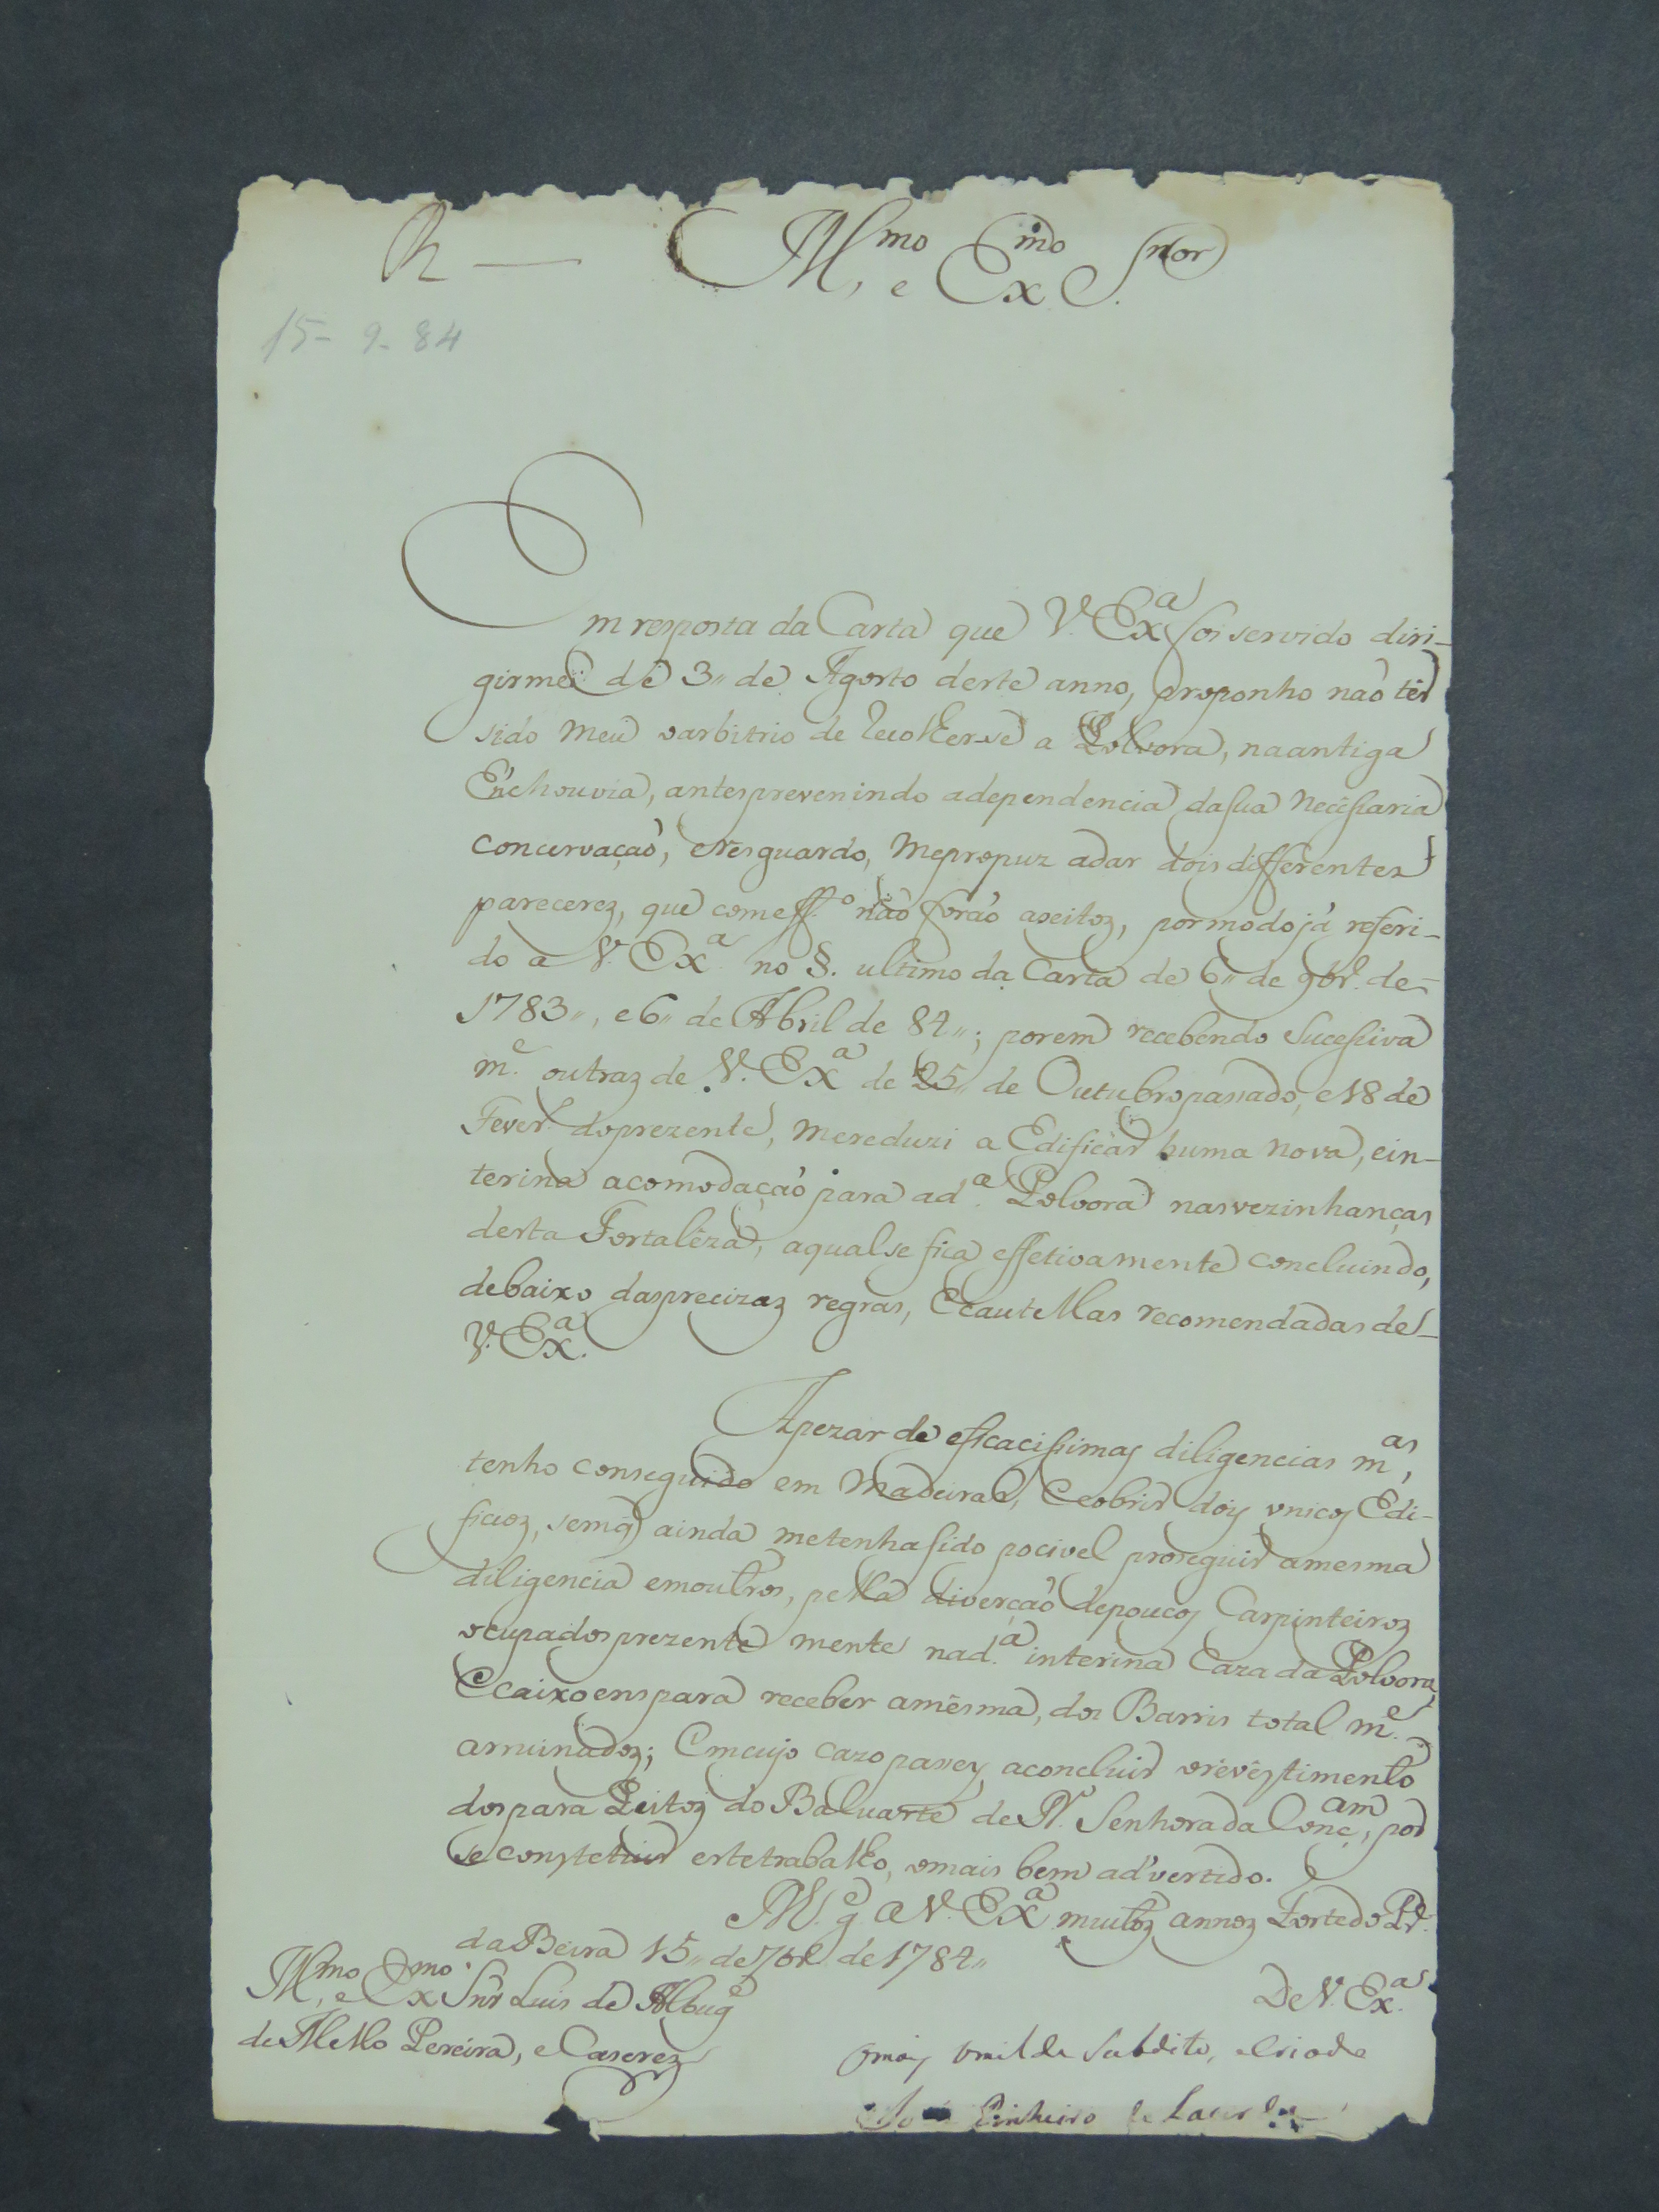 R —
Ill.mo e Ex.mo S.nor
15 - 9 - 84
Em resposta da Carta que V. Ex.a foi servido diri-
girme de 3,, de Agosto deste anno, proponho naõ ter
sido meu o arbitrio de recolher-se a Polvora, na antiga
Enchouvia, antes prevenindo a dependencia da sua necessaria
concervaçaõ, e resguardo, me propuz a dar dois differentes
parecerez, que com eff.o naõ foraõ aseitoz, por modo já referi-
do a V. Ex.a no §. ultimo da Carta de 6,, de 9br.o de
1783,, e 6,, de Abril de 84,,; porem recebendo sucessiva
m.e outraz de V. Ex.a de 25,, de Outubro passado, e 18 de
Fever.o do prezente, me reduzi a Edificar huma nova, e in-
terina acomodaçaõ para a d.a Polvora nas vezinhanças
desta Fortaleza, a qual se fica effetivamente concluindo,
debaixo das precizaz regras, e cautellas recomendadas de
V. Ex.a
Apezar de efficacissimas diligencias m.as,
tenho conseguido em Madeirar, e cobrir dois unicos Edi-
ficioz, sem q ainda me tenha sido pocivel proseguir a mesma
diligencia em outros, pella diverçaõ de poucos Carpinteiroz
ocupados prezente mente na d.a interina Caza da Polvora,
e caixoens para receber a mesma, dos Barris total m.e
arruinadoz; Em cujo cazo passey a concluir o revestimento
dos para Peitoz do Baluarte de N. Senhora da Conç.am, por
se constetuir este trabalho, o mais bem advertido.
D.s g.e a V. Ex.a muitoz annoz Forte do Pr.
da Beira 15,, de 7br.o de 1784,,
Ill.mo e Ex.mo Snr Luis de Albuq.e
de Mello Pereira, e Caserez
De V. Ex.a
O mais umilde Subdito, e Criado
Pinheiro de Lacerda